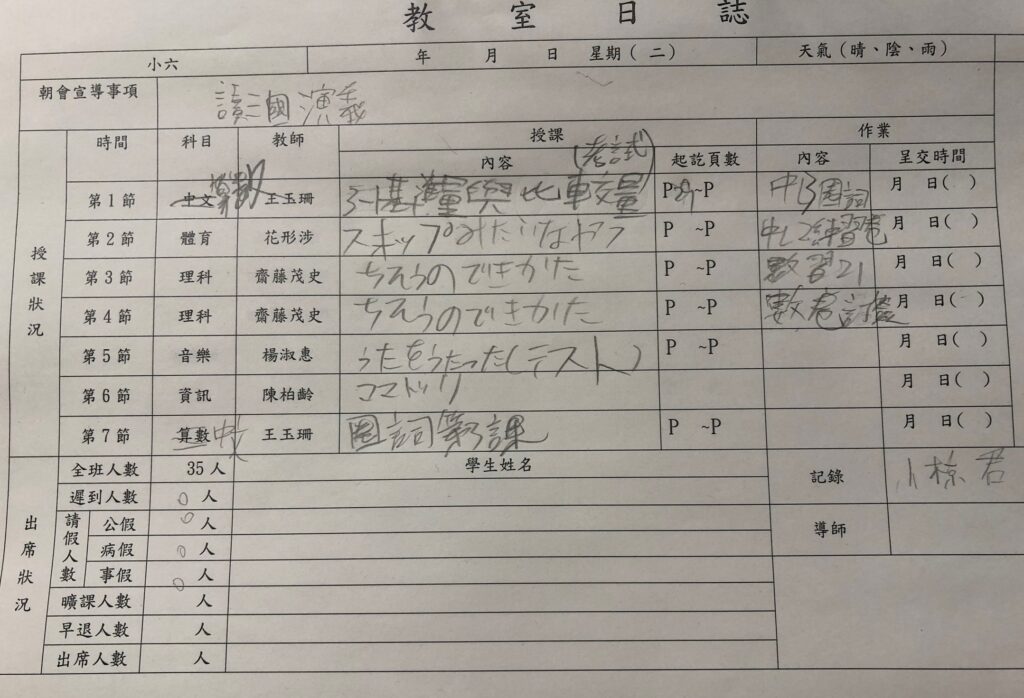 教室日誌
小六 年 月 日 星期(二) 天氣(晴、陰、雨)
朝會宣導事項 讀三國演義
授課狀況 時間 科目 教師 授課 作業
內容 (考試) 起訖頁數 內容 呈交時間
第1節 中文 算數 王玉珊 3-1基準量與比較量 P29~P 中13圈詞 月 日( )
第2節 體育 花形涉 スキップみたいなやつ P ~P 中12練習卷 月 日( )
第3節 理科 齋藤茂史 ちそうのできかた P ~P 數習21 月 日( )
第4節 理科 齋藤茂史 ちそうのできかた P ~P 數卷訂 月 日( )
第5節 音樂 楊淑惠 うたをうたった(テスト) P ~P 月 日( )
第6節 資訊 陳柏齡 コマドリ 月 日( )
第7節 算數 中文 王玉珊 圈詞第 課 P ~P 月 日( )
出席狀況 全班人數 35人 學生姓名 記錄 君
遲到人數 0人
請假人數 公假 0人 導師
病假 0人
事假 0人
曠課人數 人
早退人數 人
出席人數 人